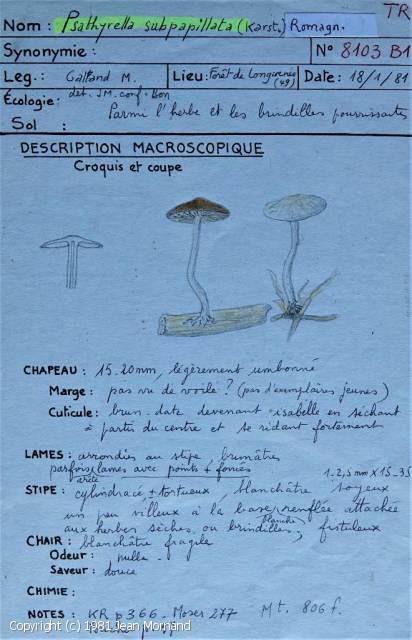 TR
Nom : Psathyrella subpapillata (Karst.) Romagn.
Synonymie : N° 8103 B1
Leg.: Galland M. Lieu: Forêt de Longuenée (49) Date: 18/1/81
dét. JM. conf. Bon
Écologie: Parmi l'herbe et les brindilles pourrissantes
Sol :
DESCRIPTION MACROSCOPIQUE
Croquis et coupe
CHAPEAU : 15-20mm, légèrement umboné
Marge : pas vu de voile ? (pas d'exemplaires jeunes)
Cuticule : brun-date devenant isabelle en séchant
à partir du centre et se ridant fortement
LAMES : arrondies au stipe, brunâtres
parfois lames avec points + foncés
arête
1-2,5mm X 15-35
STIPE : cylindracé, ± tortueux, blanchâtre, soyeux
un peu villeux à la base renflée attachée
aux herbes sèches ou brindilles, fistuleux
blanche
CHAIR : blanchâtre fragile
Odeur : nulle
Saveur : douce
CHIMIE :
NOTES : KR p 366. Moser 277 Mt. 806 f.
Copyright (c) 1981 Jean Mornand